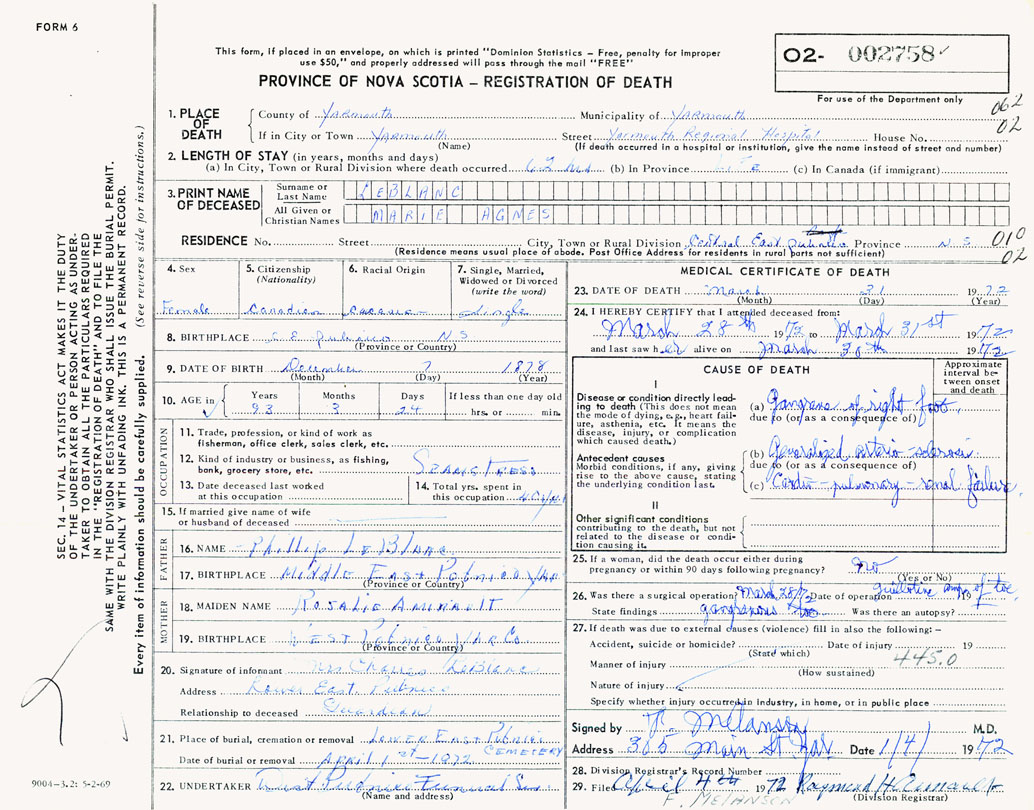 FORM 6
This form, if placed in an envelope, on which is printed "Dominion Statistics – Free, penalty for improper
use $50," and properly addressed will pass through the mail "FREE"
PROVINCE OF NOVA SCOTIA – REGISTRATION OF DEATH
O2- 002758
For use of the Department only
062
02
1. PLACE OF DEATH
County of Yarmouth Municipality of Yarmouth
If in City or Town Yarmouth Street Yarmouth Regional Hospital House No.
(Name) (If death occurred in a hospital or institution, give the name instead of street and number)
2. LENGTH OF STAY (in years, months and days)
(a) In City, Town or Rural Division where death occurred (b) In Province Life (c) In Canada (if immigrant)
3. PRINT NAME OF DECEASED
Surname or Last Name LEBLANC
All Given or Christian Names MARIE AGNES
RESIDENCE No. Street City, Town or Rural Division Central East Pubnico Province N S
010
02
(Residence means usual place of abode. Post Office Address for residents in rural parts not sufficient)
4. Sex Female
5. Citizenship (Nationality) Canadian
6. Racial Origin
7. Single, Married, Widowed or Divorced (write the word) Single
8. BIRTHPLACE C E Pubnico N S
(Province or Country)
9. DATE OF BIRTH December 7 1878
(Month) (Day) (Year)
10. AGE in Years Months Days If less than one day old
93 3 24 hrs. or min.
OCCUPATION
11. Trade, profession, or kind of work as
fisherman, office clerk, sales clerk, etc.
12. Kind of industry or business, as fishing,
bank, grocery store, etc. SEAMSTRESS
13. Date deceased last worked
at this occupation
14. Total yrs. spent in
this occupation
15. If married give name of wife
or husband of deceased
FATHER
16. NAME Phillip LeBlanc
17. BIRTHPLACE Middle East Pubnico Yar
(Province or Country)
MOTHER
18. MAIDEN NAME Rosalie Amirault
19. BIRTHPLACE West Pubnico Yar Co
(Province or Country)
20. Signature of informant Mrs Charles LeBlanc
Address Lower East Pubnico
Relationship to deceased Guardian
21. Place of burial, cremation or removal Lower East Pubnico
CEMETERY
Date of burial or removal APRIL 1st - 1972
22. UNDERTAKER
(Name and address)
MEDICAL CERTIFICATE OF DEATH
23. DATE OF DEATH March 31 1972
(Month) (Day) (Year)
24. I HEREBY CERTIFY that I attended deceased from:
March 28th 1972 to March 31st 1972
and last saw her alive on March 30th 1972
CAUSE OF DEATH
Approximate interval between onset and death
I
Disease or condition directly leading to death (This does not
mean the mode of dying, e.g., heart failure, asthenia, etc. It means the
disease, injury, or complication
which caused death.)
(a) Gangrene of right foot
due to (or as a consequence of)
Antecedent causes
Morbid conditions, if any, giving
rise to the above cause, stating
the underlying condition last.
(b) Generalized arterio sclerosis
due to (or as a consequence of)
(c) Cardio-pulmonary-renal failure
II
Other significant conditions
contributing to the death, but not
related to the disease or condition causing it.
25. If a woman, did the death occur either during
pregnancy or within 90 days following pregnancy? no
(Yes or No)
26. Was there a surgical operation? March 28/72 Date of operation guillotine amp of toe 19
State findings gangrenous toe Was there an autopsy?
27. If death was due to external causes (violence) fill in also the following: –
Accident, suicide or homicide? Date of injury 19
(State which) 445.0
Manner of injury
(How sustained)
Nature of injury
Specify whether injury occurred in industry, in home, or in public place
Signed by F Melanson M.D.
Address 305 Main St Yar Date 1/4/ 1972
28. Division Registrar's Record Number
29. Filed April 4th 1972 Raymond H Amirault
F. MELANSON (Division Registrar)
SEC. 14 – VITAL STATISTICS ACT MAKES IT THE DUTY
OF THE UNDERTAKER OR PERSON ACTING AS UNDERTAKER
TO OBTAIN ALL THE PARTICULARS REQUIRED
IN THE "REGISTRATION OF DEATH" AND TO FILE THE
SAME WITH THE DIVISION REGISTRAR WHO SHALL ISSUE THE BURIAL PERMIT.
WRITE PLAINLY WITH UNFADING INK. THIS IS A PERMANENT RECORD.
Every item of information should be carefully supplied. (See reverse side for instructions.)
9004-3.2: 5-2-69